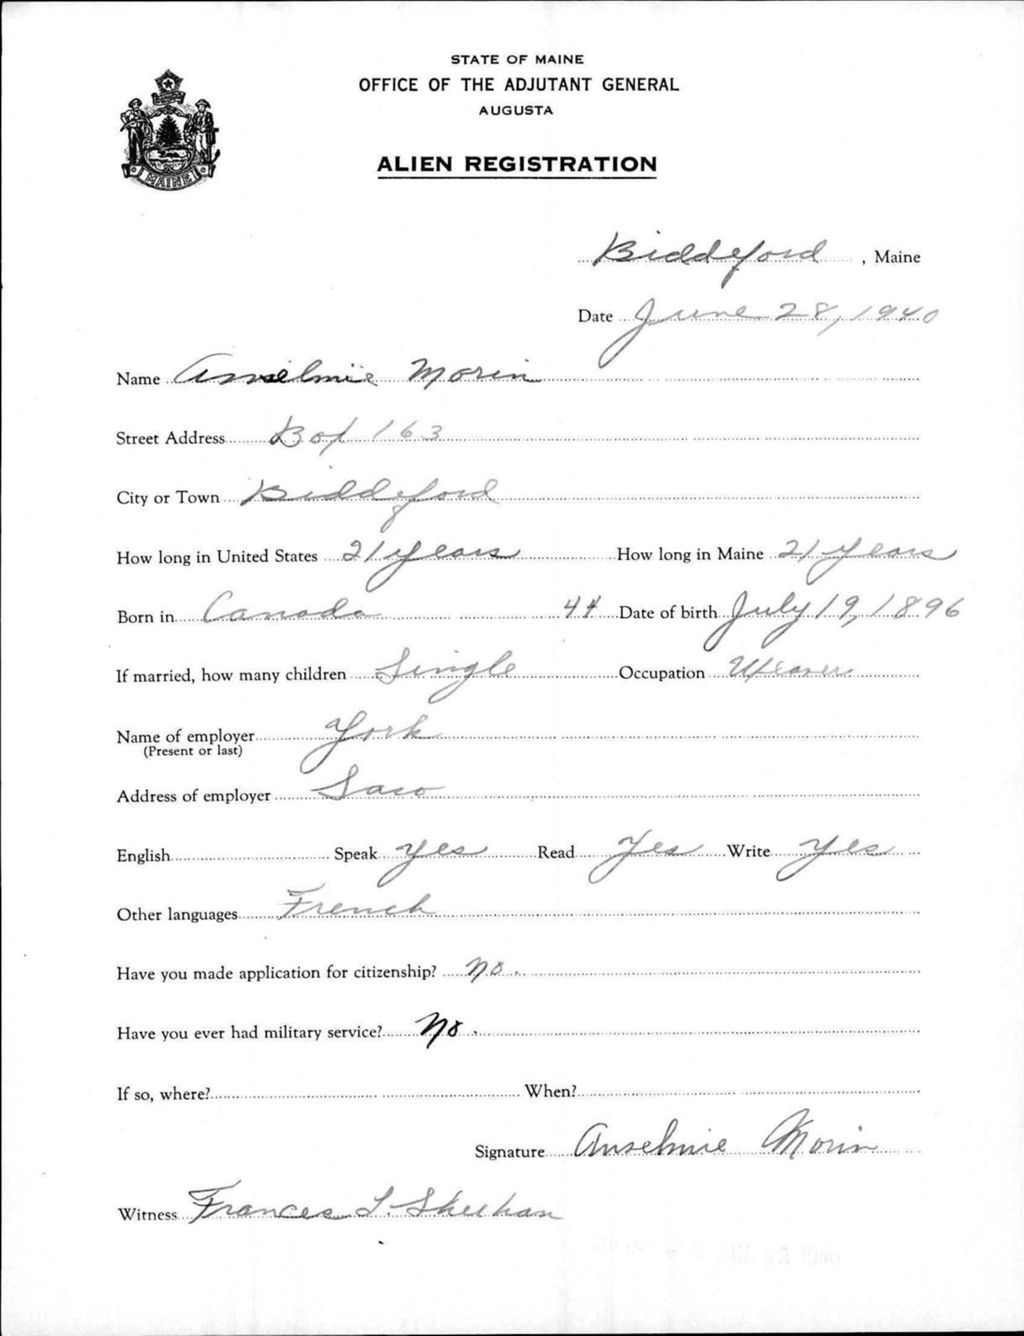 STATE OF MAINE
OFFICE OF THE ADJUTANT GENERAL
AUGUSTA
ALIEN REGISTRATION
MAINE
Biddeford, Maine
Date June 28, 1940
Name Anselmie Morin
Street Address Box 163
City or Town Biddeford
How long in United States 21 years How long in Maine 21 years
Born in Canada 44 Date of birth July 19, 1896
If married, how many children Single Occupation Weaver
Name of employer York
(Present or last)
Address of employer Saco
English Speak yes Read Yes Write yes
Other languages French
Have you made application for citizenship? No.
Have you ever had military service? No.
If so, where? When?
Signature Anselmie Morin
Witness Frances L. Sheehan